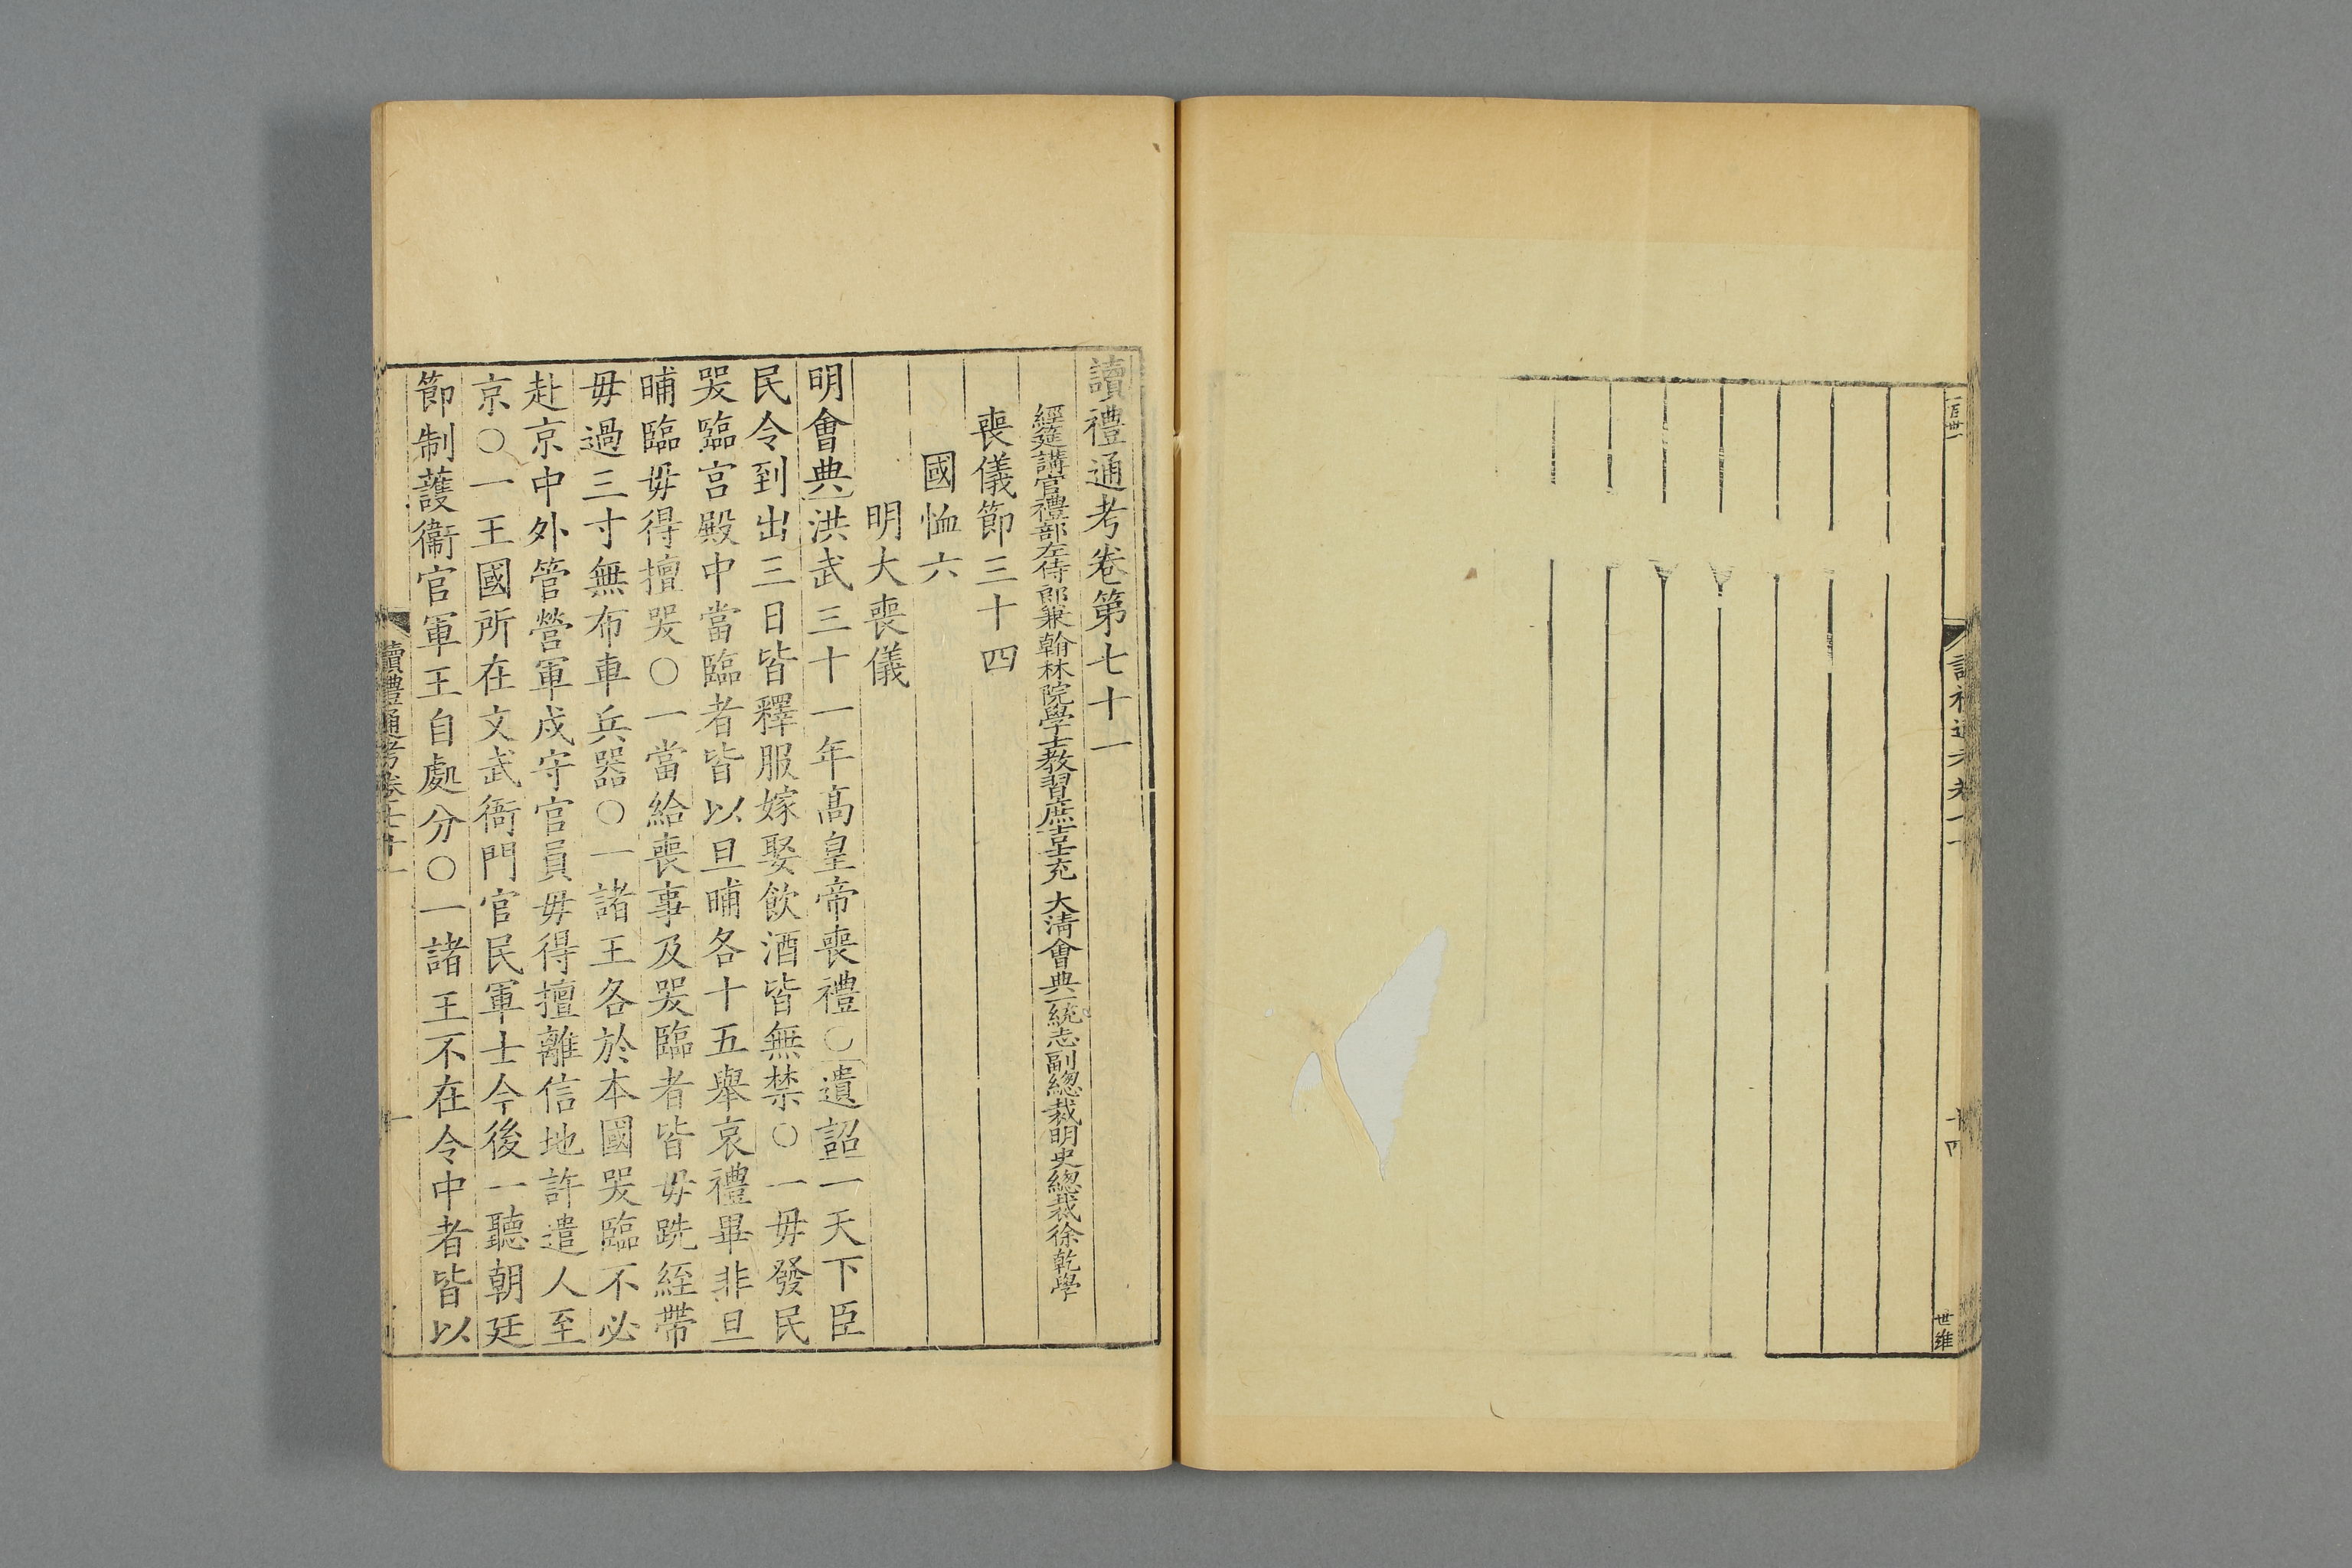 讀禮通考卷第七十一
經筵講官禮部左侍郎兼翰林院學士教習庶吉士充 大清會典一統志副總裁明史總裁徐乾學
喪儀節三十四
國恤六
明大喪儀
明會典洪武三十一年高皇帝喪禮○遺詔一天下臣
民令到出三日皆釋服嫁娶飲酒皆無禁○一毋發民
哭臨宮殿中當臨者皆以旦晡各十五舉哀禮畢非旦
晡臨毋得擅哭○一當給喪事及哭臨者皆毋跣絰帶
毋過三寸無布車兵器○一諸王各於本國哭臨不必
赴京中外管營軍戍守官員毋得擅離信地許遣人至
京○一王國所在文武衙門官民軍士今後一聽朝廷
節制護衞官軍王自處分○一諸王不在令中者皆以
讀禮通考卷七十一
一
十四
世維